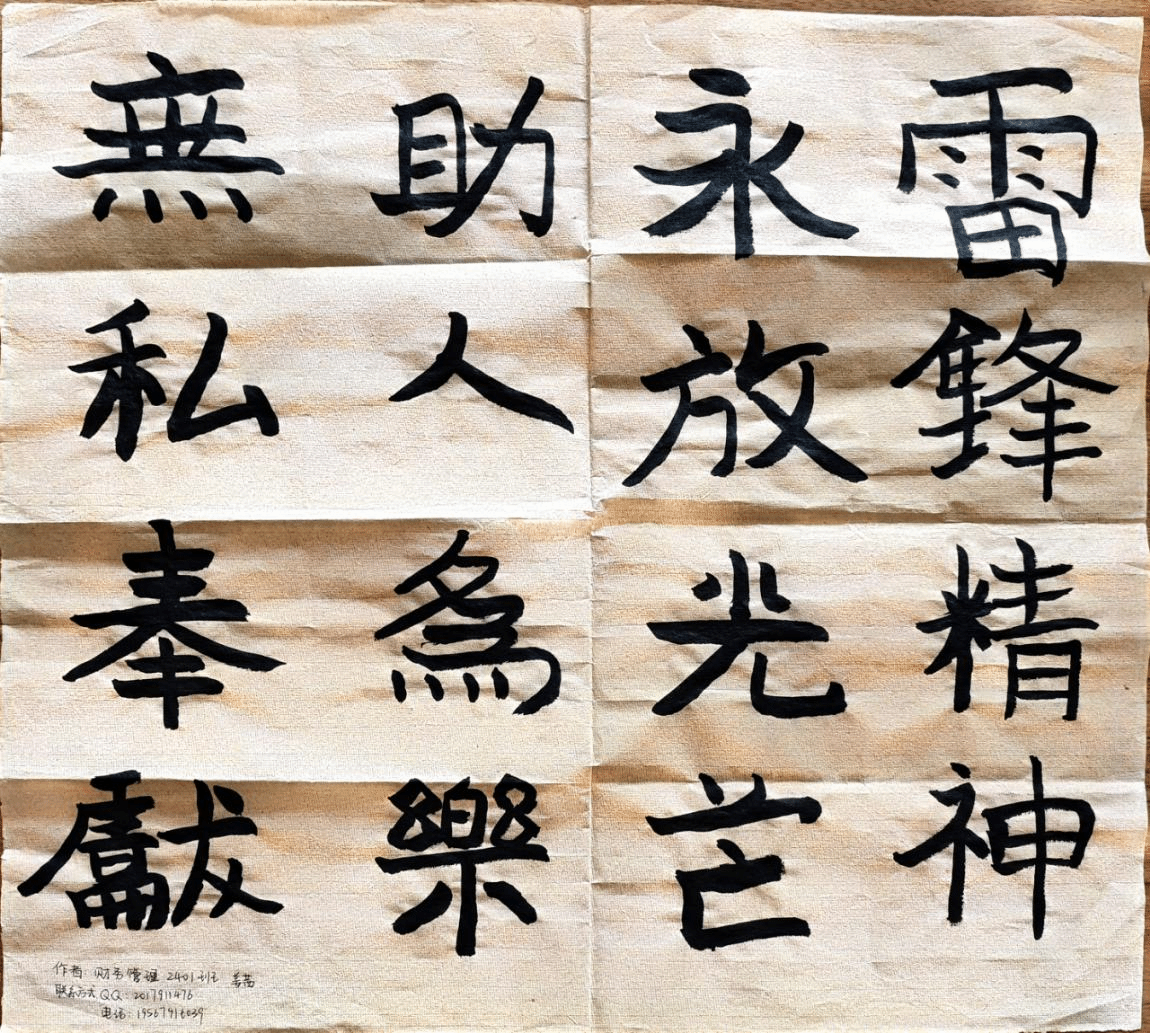 雷鋒精神
永放光芒
助人為樂
無私奉獻
作者：财务管理2401班 姜茜
联系方式QQ：2017911476
电话：19567916039